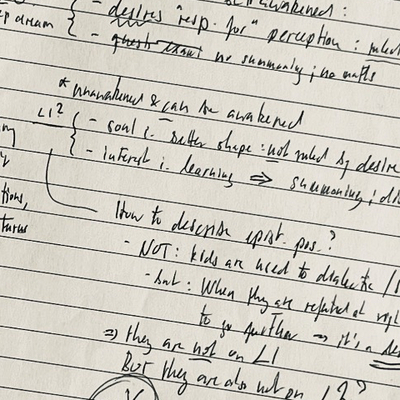 awakened :
- desires "resp. for" perception : ruled
p dream
- no summoning ; no maths
* unawakened & can be awakened
L1?
- soul i. better shape : not ruled by desire
- interest i. learning ⇒ summoning ; di
How to describe epist. pos. ?
- NOT : kids are used to dialectic /
- but : When they are refuted at
to go further → it's a de
⇒ they are not on L1
BUT they are also not on L2?